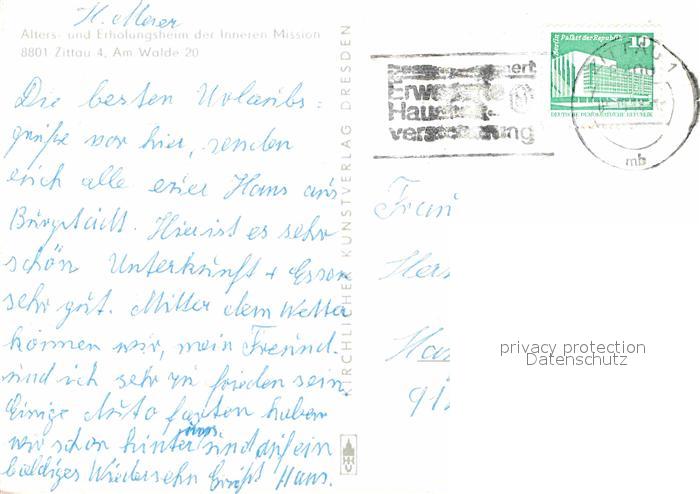 H. Meier
Alters- und Erholungsheim der Inneren Mission
8801 Zittau 4, Am Walde 20
Die besten Urlaubs-
grüße von hier, senden
euch alle euer Hans aus
Burgstädt. Hier ist es sehr
schön Unterkunft + Essen
sehr gut. Mitter dem Wetter
können wir, mein Freund
und ich sehr zu frieden sein.
Einige Auto farten haben
wir schon hinter uns sind auf ein
baldiges Wiedersehn Grüßt Hans.
KIRCHLICHER KUNSTVERLAG DRESDEN
Erweiterte
Haushalt-
versicherung
Berlin Palast der Republik
10
DEUTSCHE DEMOKRATISCHE REPUBLIK
ZITTAU 1
mb
Frau
privacy protection
Datenschutz